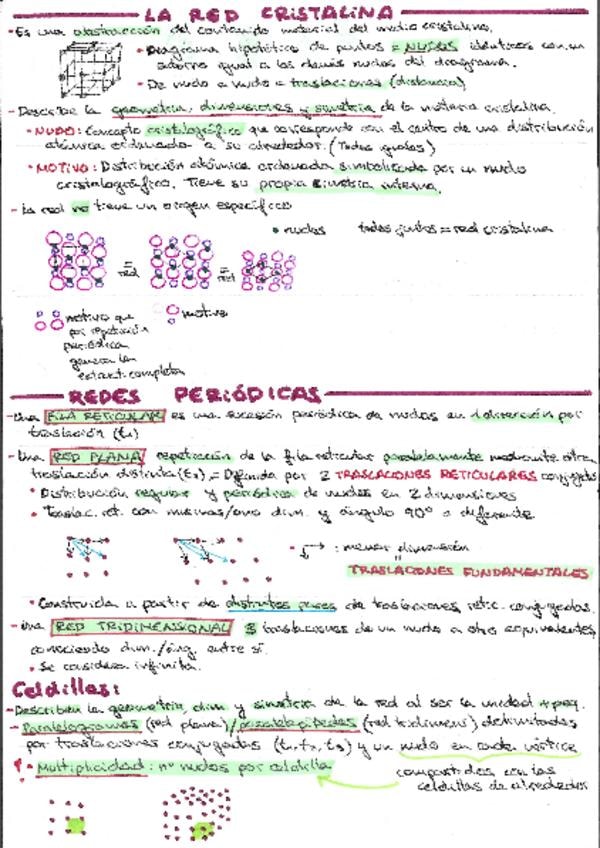 LA RED CRISTALINA
- Es una abstracción del contenido material del medio cristalino.
• Diagrama hipotético de puntos = NUDOS idénticos con un
entorno igual a los demás nudos del diagrama.
• De nudo a nudo = traslaciones (distancia)
- Describe la geometría, dimensiones y simetría de la materia cristalina.
• NUDO: Concepto cristalográfico que corresponde con el centro de una distribución
atómica ordenada a su alrededor. (Todos iguales)
• MOTIVO: Distribución atómica ordenada simbolizada por un nudo
cristalográfico. Tiene su propia simetría interna.
- La red no tiene un origen específico
• nudos todos juntos = red cristalina
= red = red
motivo que
por repetición
periódica
genera la
estruct. completa
motivo
REDES PERIÓDICAS
- Una FILA RETICULAR es una sucesión periódica de nudos en 1 dirección por
traslación (t₁)
- Una RED PLANA repetición de la fila reticular paralelamente mediante otra
traslación distinta (t₂) = Definida por 2 TRASLACIONES RETICULARES conjugadas
• Distribución regular y periódica de nudos en 2 dimensiones
• Traslac. ret. con mismas/ dim. y ángulo 90º o diferente
- : menor dimensión
TRASLACIONES FUNDAMENTALES
• Construida a partir de distintos pares de traslaciones retic. conjugadas.
- Una RED TRIDIMENSIONAL 3 traslaciones de un nudo a otro equivalentes,
conociendo dim./áng. entre sí.
• Se considera infinita.
Celdillas:
- Describen la geometría, dim y simetría de la red al ser la unidad + peq.
- Paralelogramos (red plana)/paralelepípedos (red tridimens) delimitadas
por traslaciones conjugadas (t₁, t₂, t₃) y un nudo en cada vértice
• Multiplicidad: nº nudos por celdilla
compartidos con las
celdillas de alrededor